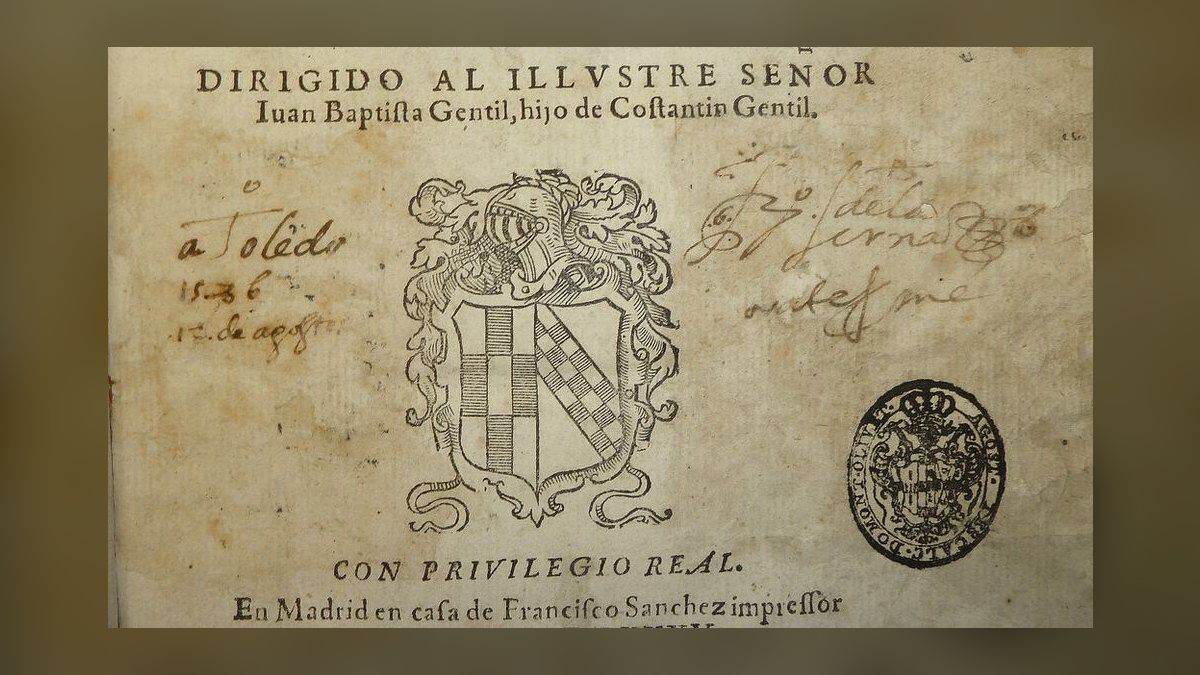 DIRIGIDO AL ILLVSTRE SENOR
Iuan Baptiſta Gentil, hijo de Coſtantin Gentil.
a Toledo
1586
12. de agosto
de la
serna
ante mi
CON PRIVILEGIO REAL.
En Madrid en caſa de Franciſco Sanchez impreſſor